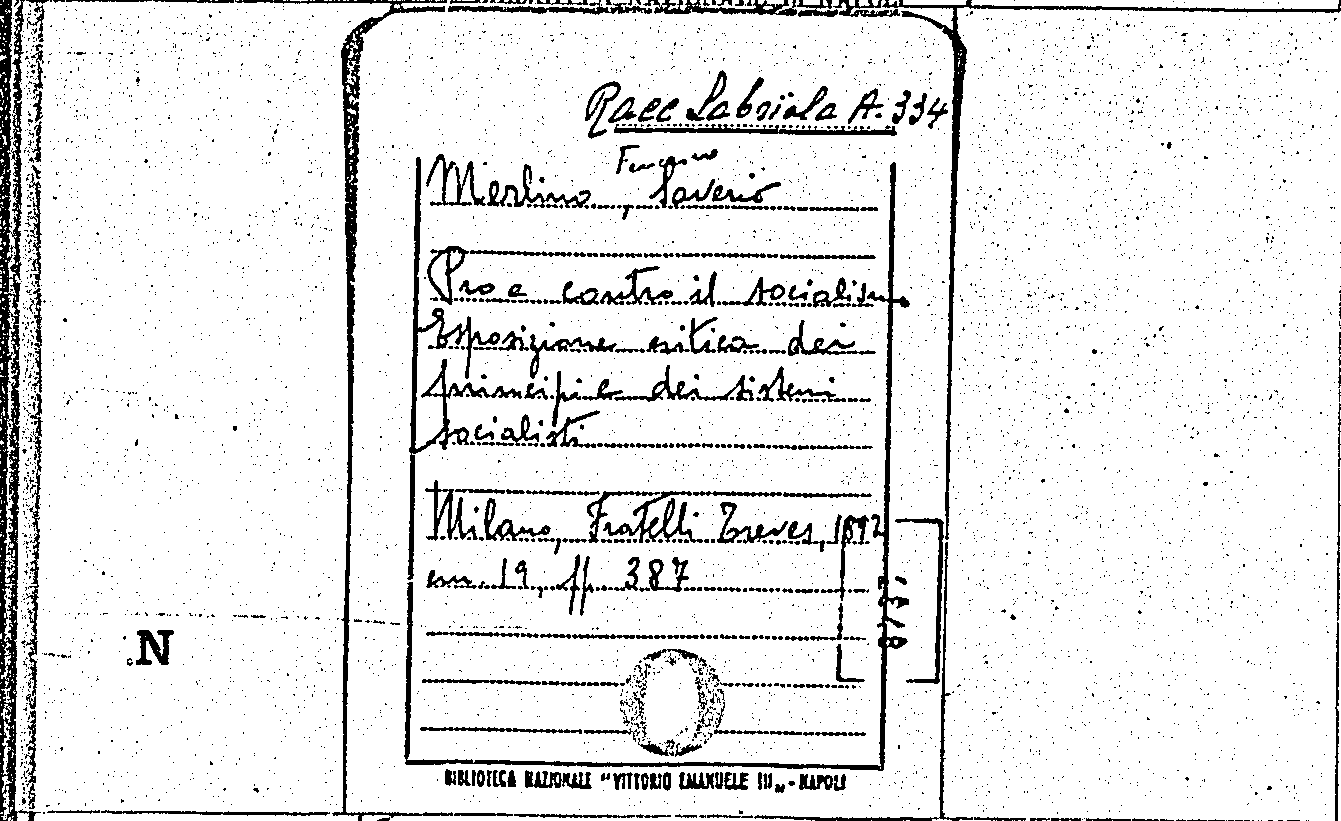 Racc Labriola A. 334
Francesco
Merlino, Saverio
Pro e contro il socialismo
Esposizione critica dei
principi e dei sistemi
socialisti
Milano, Fratelli Treves, 1892
cm. 19, pp 387
N
BIBLIOTECA NAZIONALE "VITTORIO EMANUELE III„ - NAPOLI